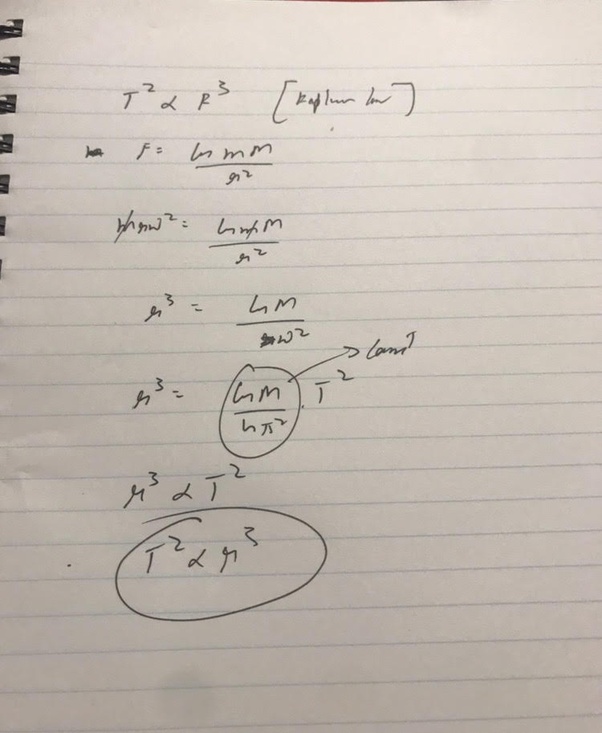 T² ∝ R³ [Kepler law]
F = GmM / r²
mrω² = GmM / r²
r³ = GM / ω²
r³ = GM / 4π² . T² → const
r³ ∝ T²
T² ∝ r³